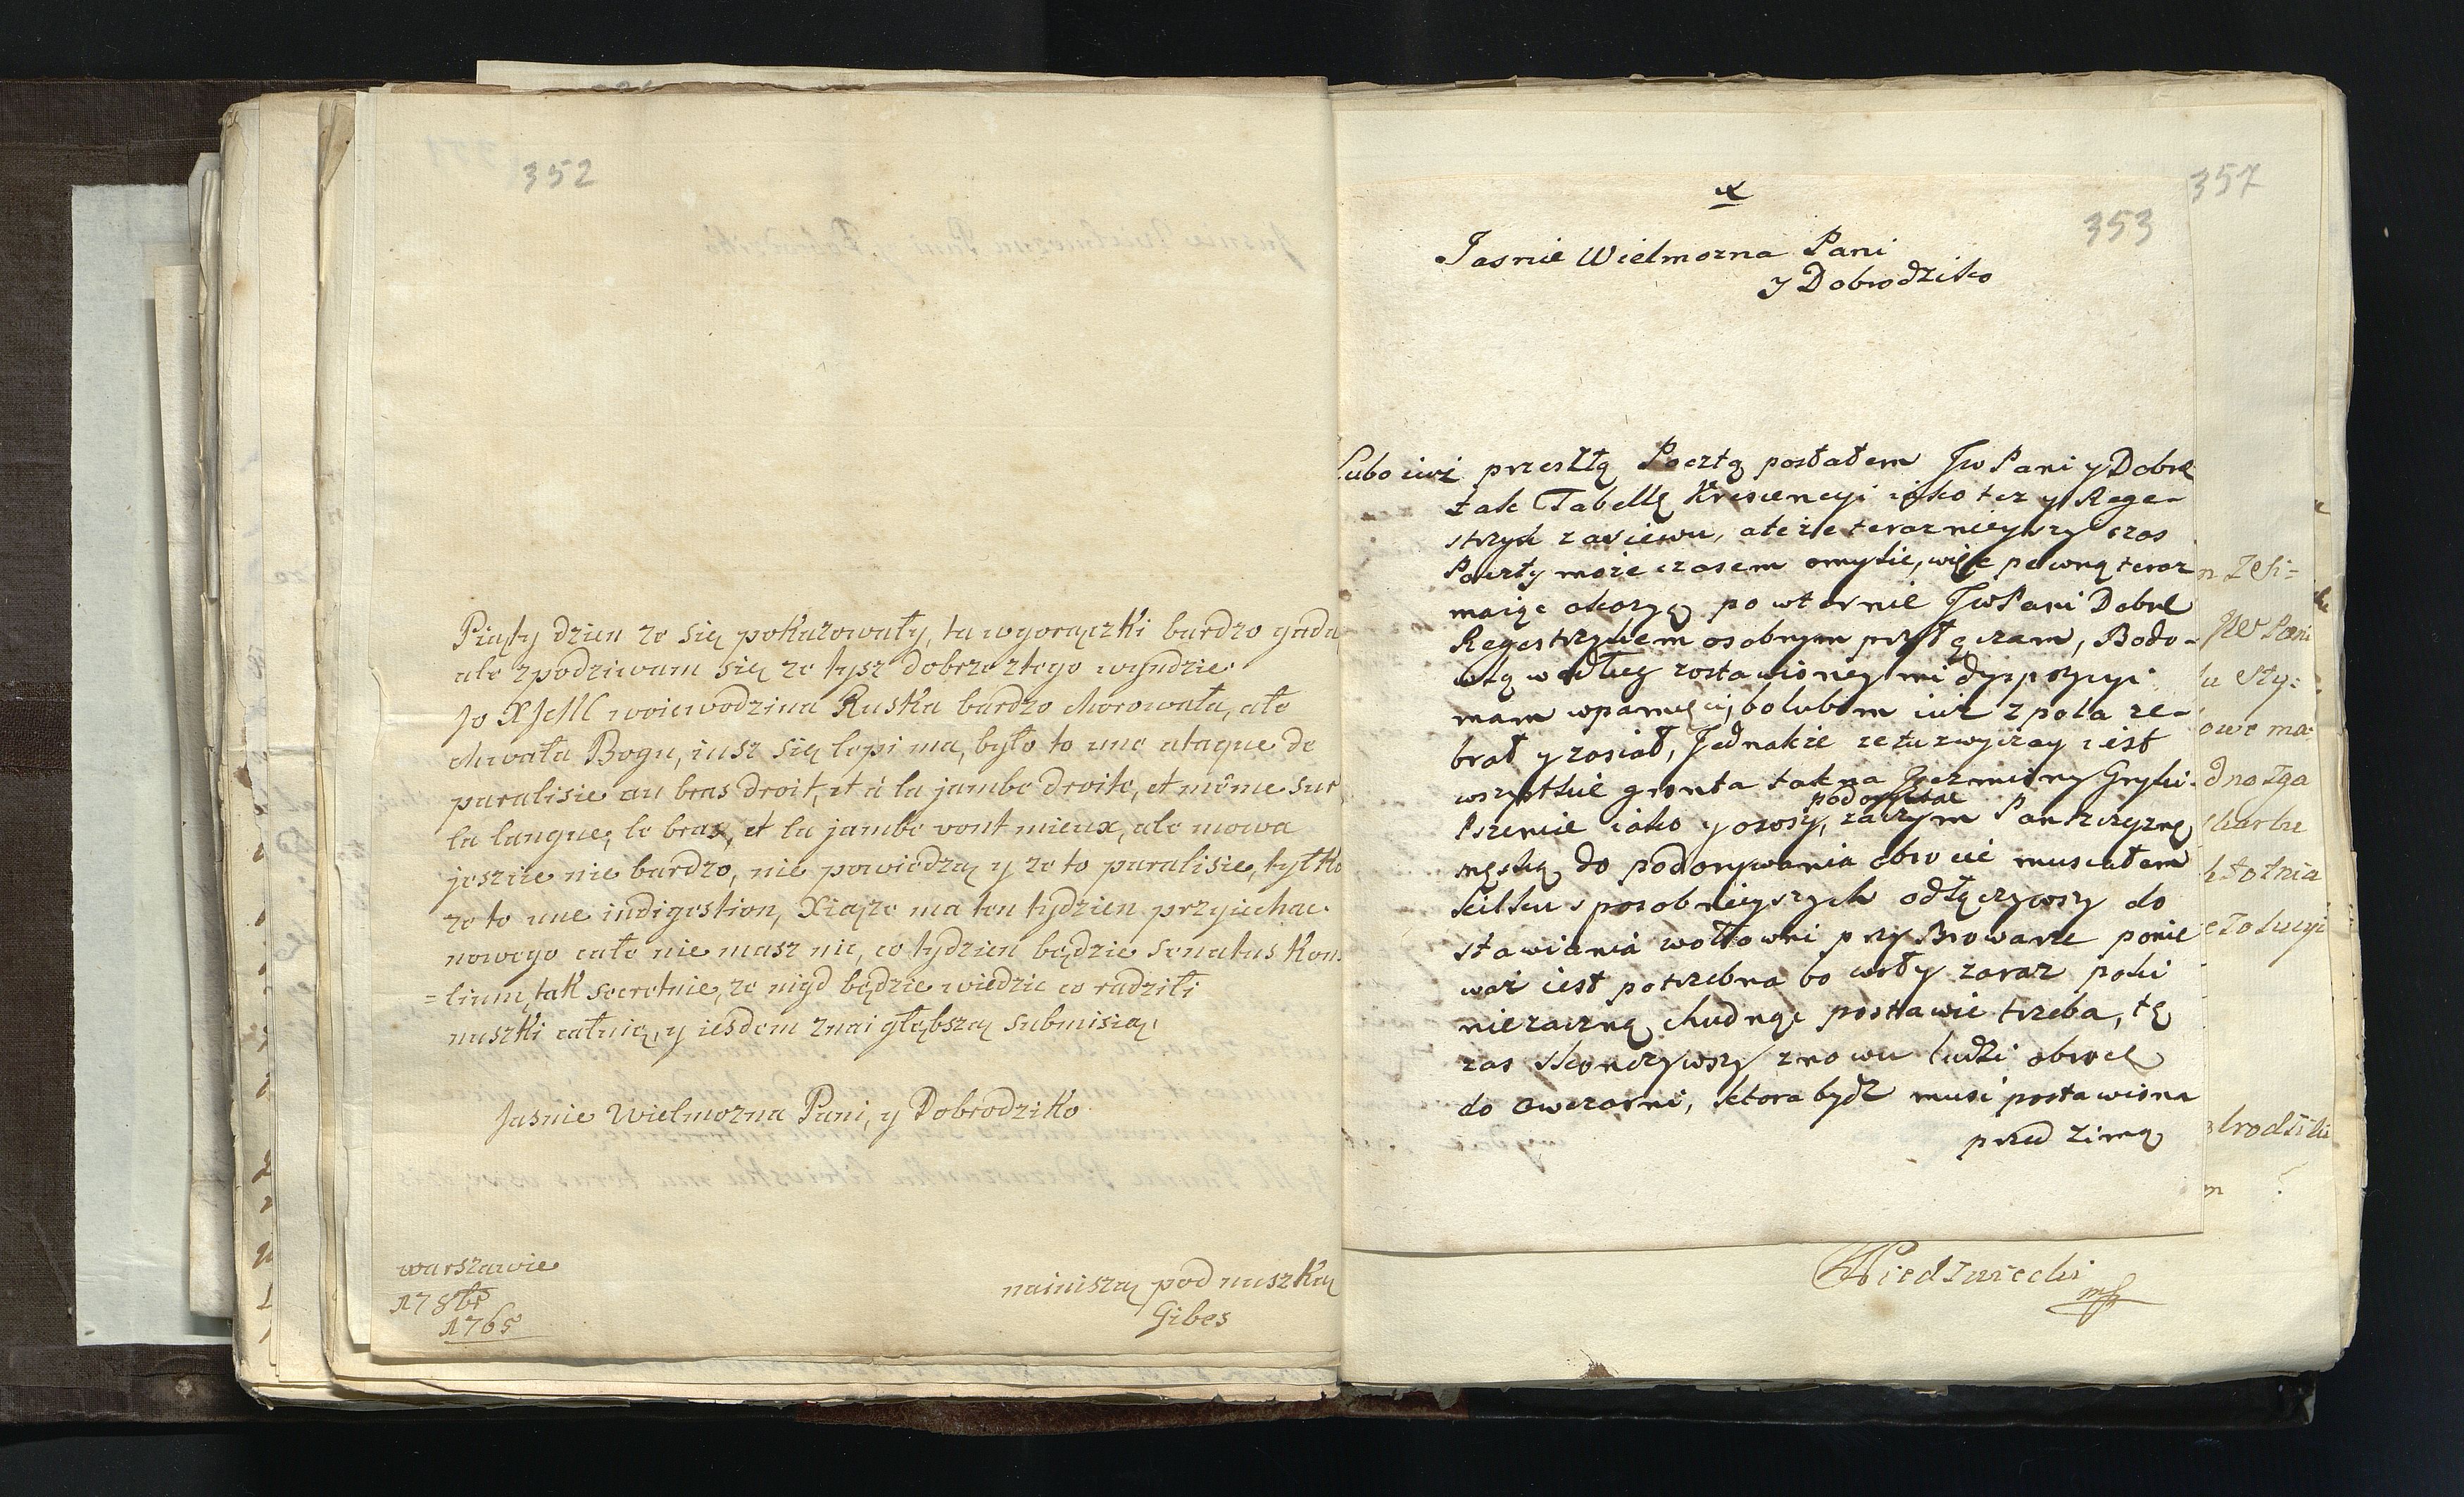 352
Piąty dzien ze się pokazowały, ta wgorączki bardzo gada
ale zpodziwam się ze tysz dobrze ztego wyndzie
Jo X JeMC woiewodzina Ruska bardzo chorowała, ale
chwała Bogu, iusz się lepi ma, było to une ataque de
paralisie au bras droit, et à la jambe droite, et même sur
la langue; le bras, et la jambe vont mieux, ale mowa
jeszcze nie bardzo, nie powiedzą y ze to paralisie, tylko
ze to une indigestion, Xiąze ma ten tydzien przyiechac
nowego całe nie masz nic, co tydzien będzie senatus Kon
=lium, tak secretnie, ze nigd będzie wiedzic co radzili
nuszki całuię, y iesdem znai głębszą submisią.
Jasnie Wielmozna Pani, y Dobrodziko
warszawie
1765
nainiszą pod nuszką
Gibes
357
353
Jasnie Wielmozna Pani
y Dobrodziko
Lubo iuz przeszłą Pocztą posłałem Jw Pani y Dobre
tak Tabellę Krescencyi iako tez y Rege-
strzyk zasiewu, ale ze teraznieyszy czas
Poczty moze czasem omylic, więc pewną teraz
maiąc okazyą powtornie JwPani Dobre
Regestrzykiem osobnym przyłączam, Budo-
wlą według zostawioney mi dyspozycyi
mam wpamięci, bo lubom iuz z pola ze-
brał y zasiał, Jednakze ze tu zwyczay iest
wszystkie gronta tak na Jęczmiony Gryki
Pszenice iako y orosy, podorywac zaczym Panszczyznę
męską do podorywania obrocic musiałem
kilku sposobnieyszych odłączywszy do
stawiania wołowni przy Browarze ponie
waz iest potrzebna bo woły zaraz poki
niezaczną chudnąc postawic trzeba, tę
zas skonczywszy znowu ludzi obrocę
do owczarni, ktora bydz musi postawiona
przed zimą
JW Pani
u sty:
owe ma:
dnozga
skarbe
Niedzwiecki
mp